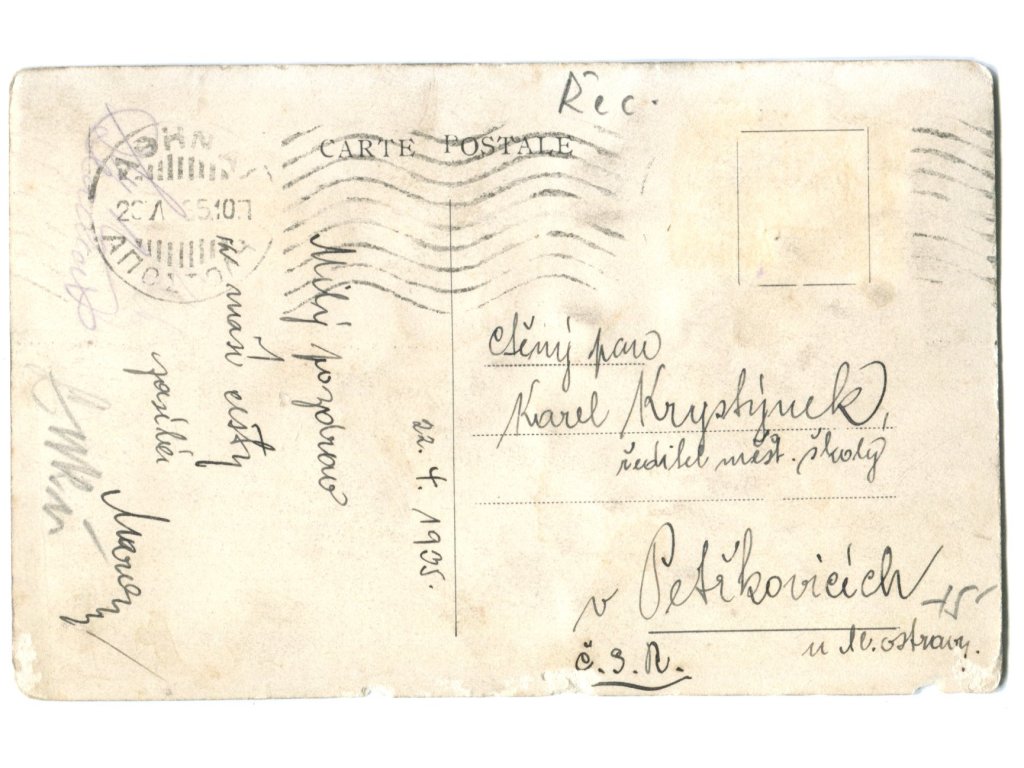 Řec.
CARTE POSTALE
ΑΘΗΝ
ΑΠΟΣΤΟ
Milý pozdrav
na naší cesty
zasílá
22. 4. 1935.
Ctěný pan
Karel Krystýnek,
ředitel měšt. školy
v Petřkovicích
u M. Ostravy.
Č.S.R.